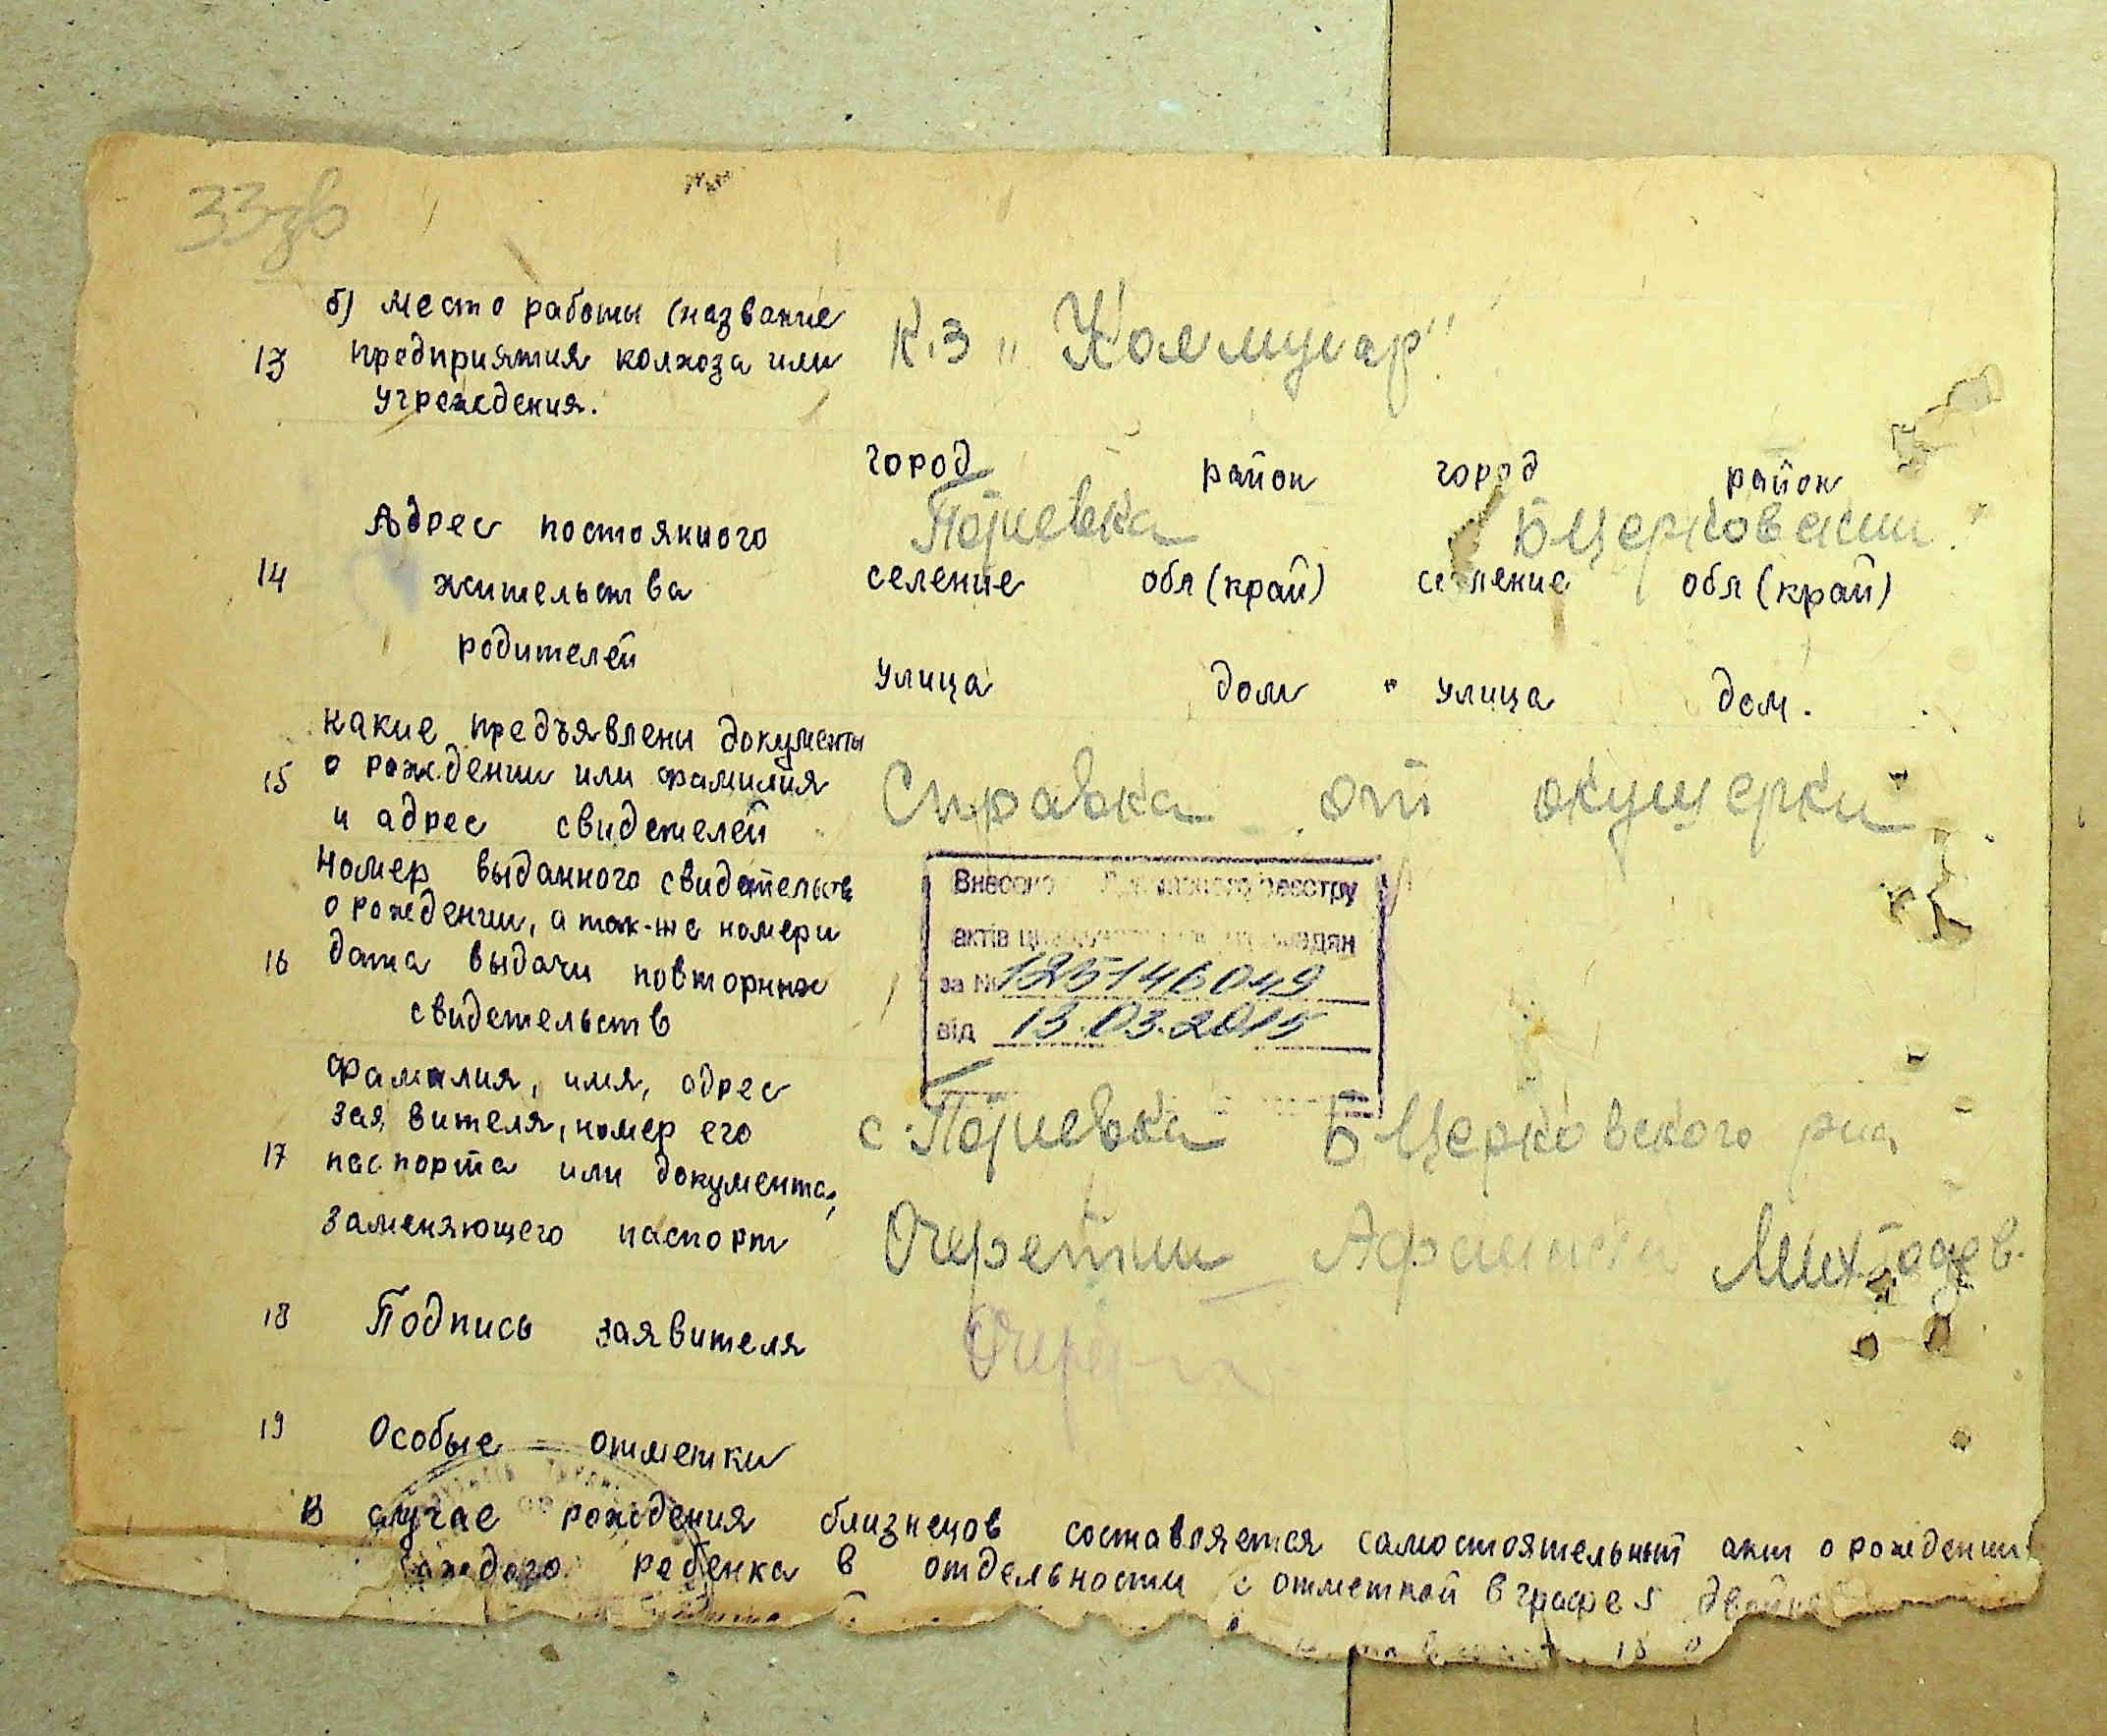 33зв
б) место работы (название
13 предприятия колхоза или
учреждения.
К.з „Коммунар"
город район город район
Адрес постоянного
Пологи Б Церковский
14 жительства
селение обл (край) селение обл (край)
родителей
улица дом улица дом.
какие предъявлени документы
15 о рождении или фамилия
и адрес свидетелей
Справка от окушерки
номер выданного свидетельств
о рождении, а так-же номери
16 дата выдачи повторных
свидетельств
Внесено реєстру
актів громадян
за № 125146049
від 13.03.2015
фамилия, имя, адрес
заявителя, номер его
17 паспорта или документа,
заменяющего паспорт
с. Б Церковского р-на
Очеретин
18 Подпись заявителя
19 Особые отметки
В случае рождения близнецов составляется самостоятельный акт о рождении
каждого ребенка в отдельности с отметкой в графе 5